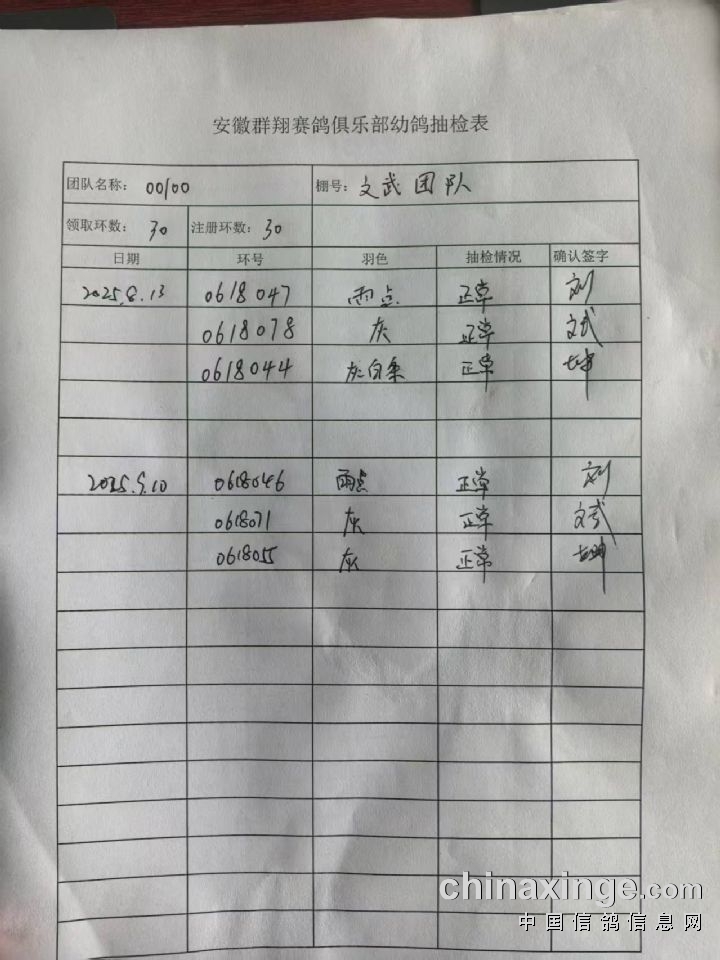 安徽群翔赛鸽俱乐部幼鸽抽检表
团队名称: 00100 棚号: 文武团队
领取环数: 30 注册环数: 30
日期 环号 羽色 抽检情况 确认签字
2025.8.13 0618047 雨点 正常 刘
0618078 灰 正常 文武
0618044 灰白条 正常 坤
2025.9.10 0618046 雨点 正常 刘
0618071 灰 正常 文武
0618055 灰 正常 坤
chinaxinge.com
中国信鸽信息网